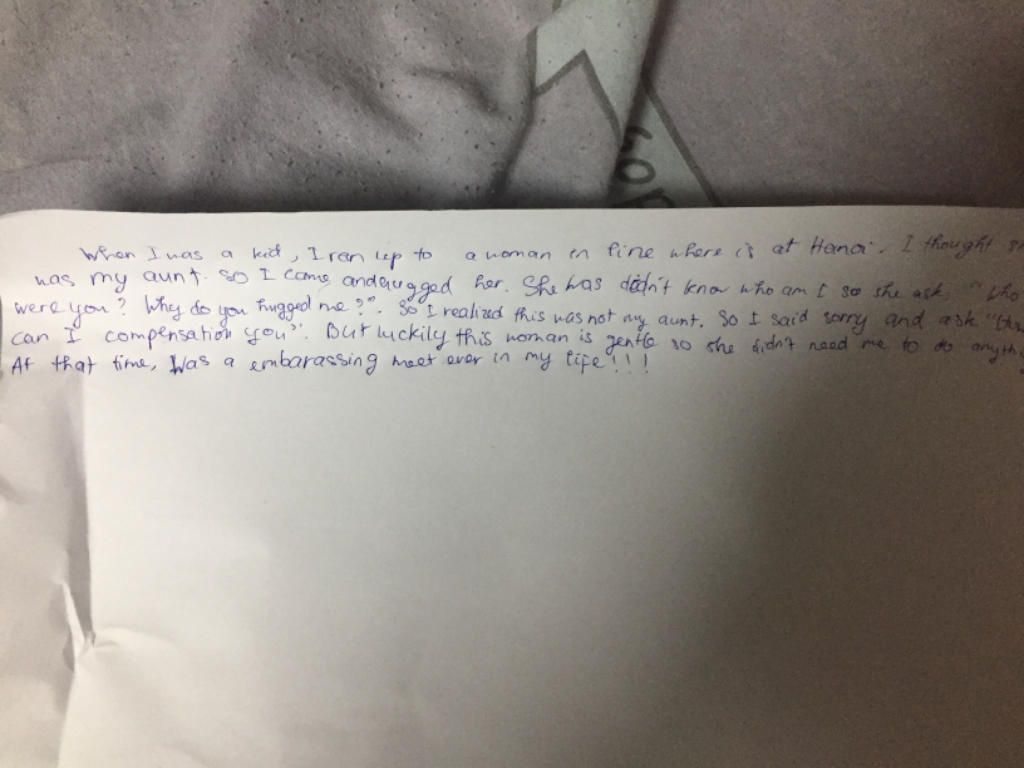 for
When I was a kid, I ran up to a woman in line where is at Hanoi. I thought
was my aunt. So I came and hugged her. She was didn't know who am I so she ask "Who
were you? Why do you hugged me?". So I realized this was not my aunt. So I said sorry and ask
can I compensation you". But luckily this woman is gentle so she didn't need me to do
At that time, Was a embarassing meet ever in my life!!!